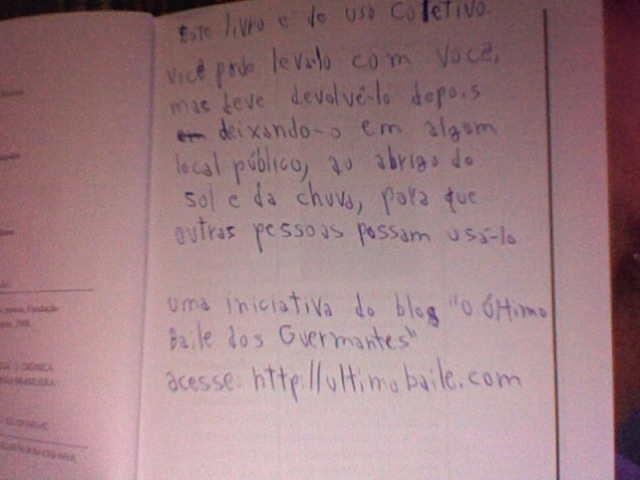 Este livro e de uso coletivo.
você pode levalo com você,
mas deve devolvê-lo depois
em deixando-o em algum
local público, ao abrigo do
sol e da chuva, para que
outras pessoas possam usá-lo
uma iniciativa do blog "O Último
Baile dos Guermantes"
acesse: http://ultimobaile.com